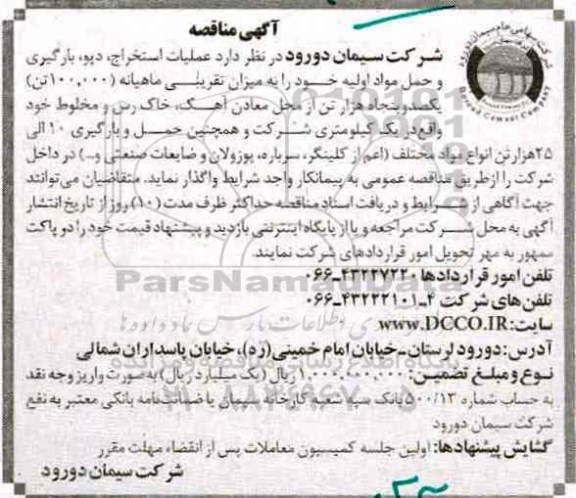 آگهی مناقصه
شرکت سیمان دورود در نظر دارد عملیات استخراج، دپو، بارگیری
و حمل مواد اولیه خود را به میزان تقریبی ماهیانه (۱۰۰,۰۰۰ تن)
یکصدوپنجاه هزار تن از محل معادن آهک، خاک رس و مخلوط خود
واقع در یک کیلومتری شرکت و همچنین حمل و بارگیری ۱۰ الی
۲۵هزار تن انواع مواد مختلف (اعم از کلینکر، سرباره، پوزولان و ضایعات صنعتی و...) در داخل
شرکت را از طریق مناقصه عمومی به پیمانکار واجد شرایط واگذار نماید. متقاضیان می‌توانند
جهت آگاهی از شرایط و دریافت اسناد مناقصه حداکثر ظرف مدت (۱۰) روز از تاریخ انتشار
آگهی به محل شرکت مراجعه و یا از پایگاه اینترنتی بازدید و پیشنهاد قیمت خود را دو پاکت
ممهور به مهر تحویل امور قراردادهای شرکت نمایند.
تلفن امور قراردادها ۴۳۲۲۷۲۲۰-۰۶۶
تلفن‌های شرکت ۴-۴۳۲۲۲۱۰۱-۰۶۶
سایت: www.DCCO.IR
آدرس: دورود لرستان-خیابان امام خمینی(ره)، خیابان پاسداران شمالی
نوع و مبلغ تضمین: ۱,۰۰۰,۰۰۰,۰۰۰ ریال (یک میلیارد ریال) به صورت واریز وجه نقد
به حساب شماره ۵۰۰/۱۳ بانک سپه شعبه کارخانه سیمان یا ضمانت‌نامه بانکی معتبر به نفع
شرکت سیمان دورود
گشایش پیشنهادها: اولین جلسه کمیسیون معاملات پس از انقضاء مهلت مقرر
شرکت سیمان دورود
شرکت سهامی عام سیمان دورود
Doroud Cement Company
ParsNamadData